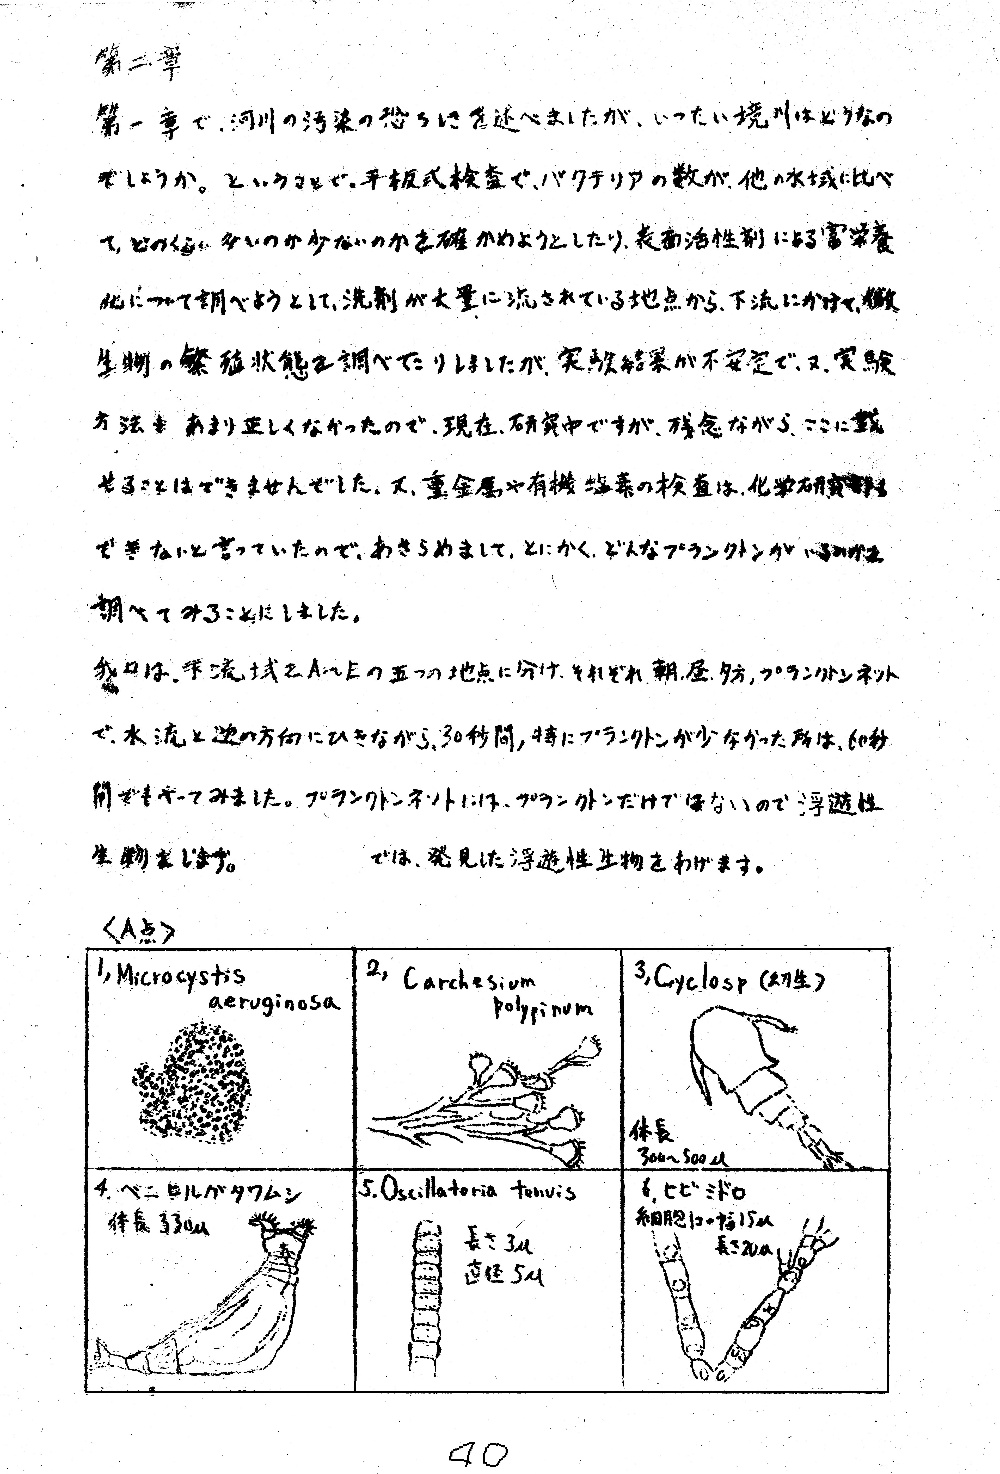 第二章
第一章で、河川の汚染の恐ろしさを述べましたが、いったい境川はどうなの
でしようか。ということで、平板式検査で、バクテリアの数が、他の水域に比べ
て、どのくらい多いのか少ないのかを確かめようとしたり、表面活性剤による富栄養
化について調べようとして、洗剤が大量に流されている地点から、下流にかけて、微
生物の繁殖状態を調べてたりしましたが、実験結果が不安定で、又、実験
方法も あまり正しくなかったので、現在、研究中ですが、残念ながら、ここに載
せることはできませんでした。又、重金属や有機塩素の検査は、化学研究部も
できないと言っていたので、あきらめまして、とにかく、どんなプランクトンがいるのかを
調べてみることにしました。
我々は、本流域をA〜Eの五つの地点に分け、それぞれ朝、昼、夕方、プランクトンネット
で、水流と逆の方向にひきながら、30秒間、特にプランクトンが少なかった所は、60秒
間でもやってみました。プランクトンネットには、プランクトンだけではないので浮遊性
生物とします。 では、発見した浮遊性生物をあげます。
〈A点〉
1, Microcystis
aeruginosa
2, Carchesium
polypinum
3, Cyclosp (幼生)
体長
300〜500μ
4. ベニヒルガタワムシ
体長 330μ
5. Oscillatoria tenuis
長さ 3μ
直径 5μ
6, ヒビミドロ
細胞の幅15μ
長さ20μ
40